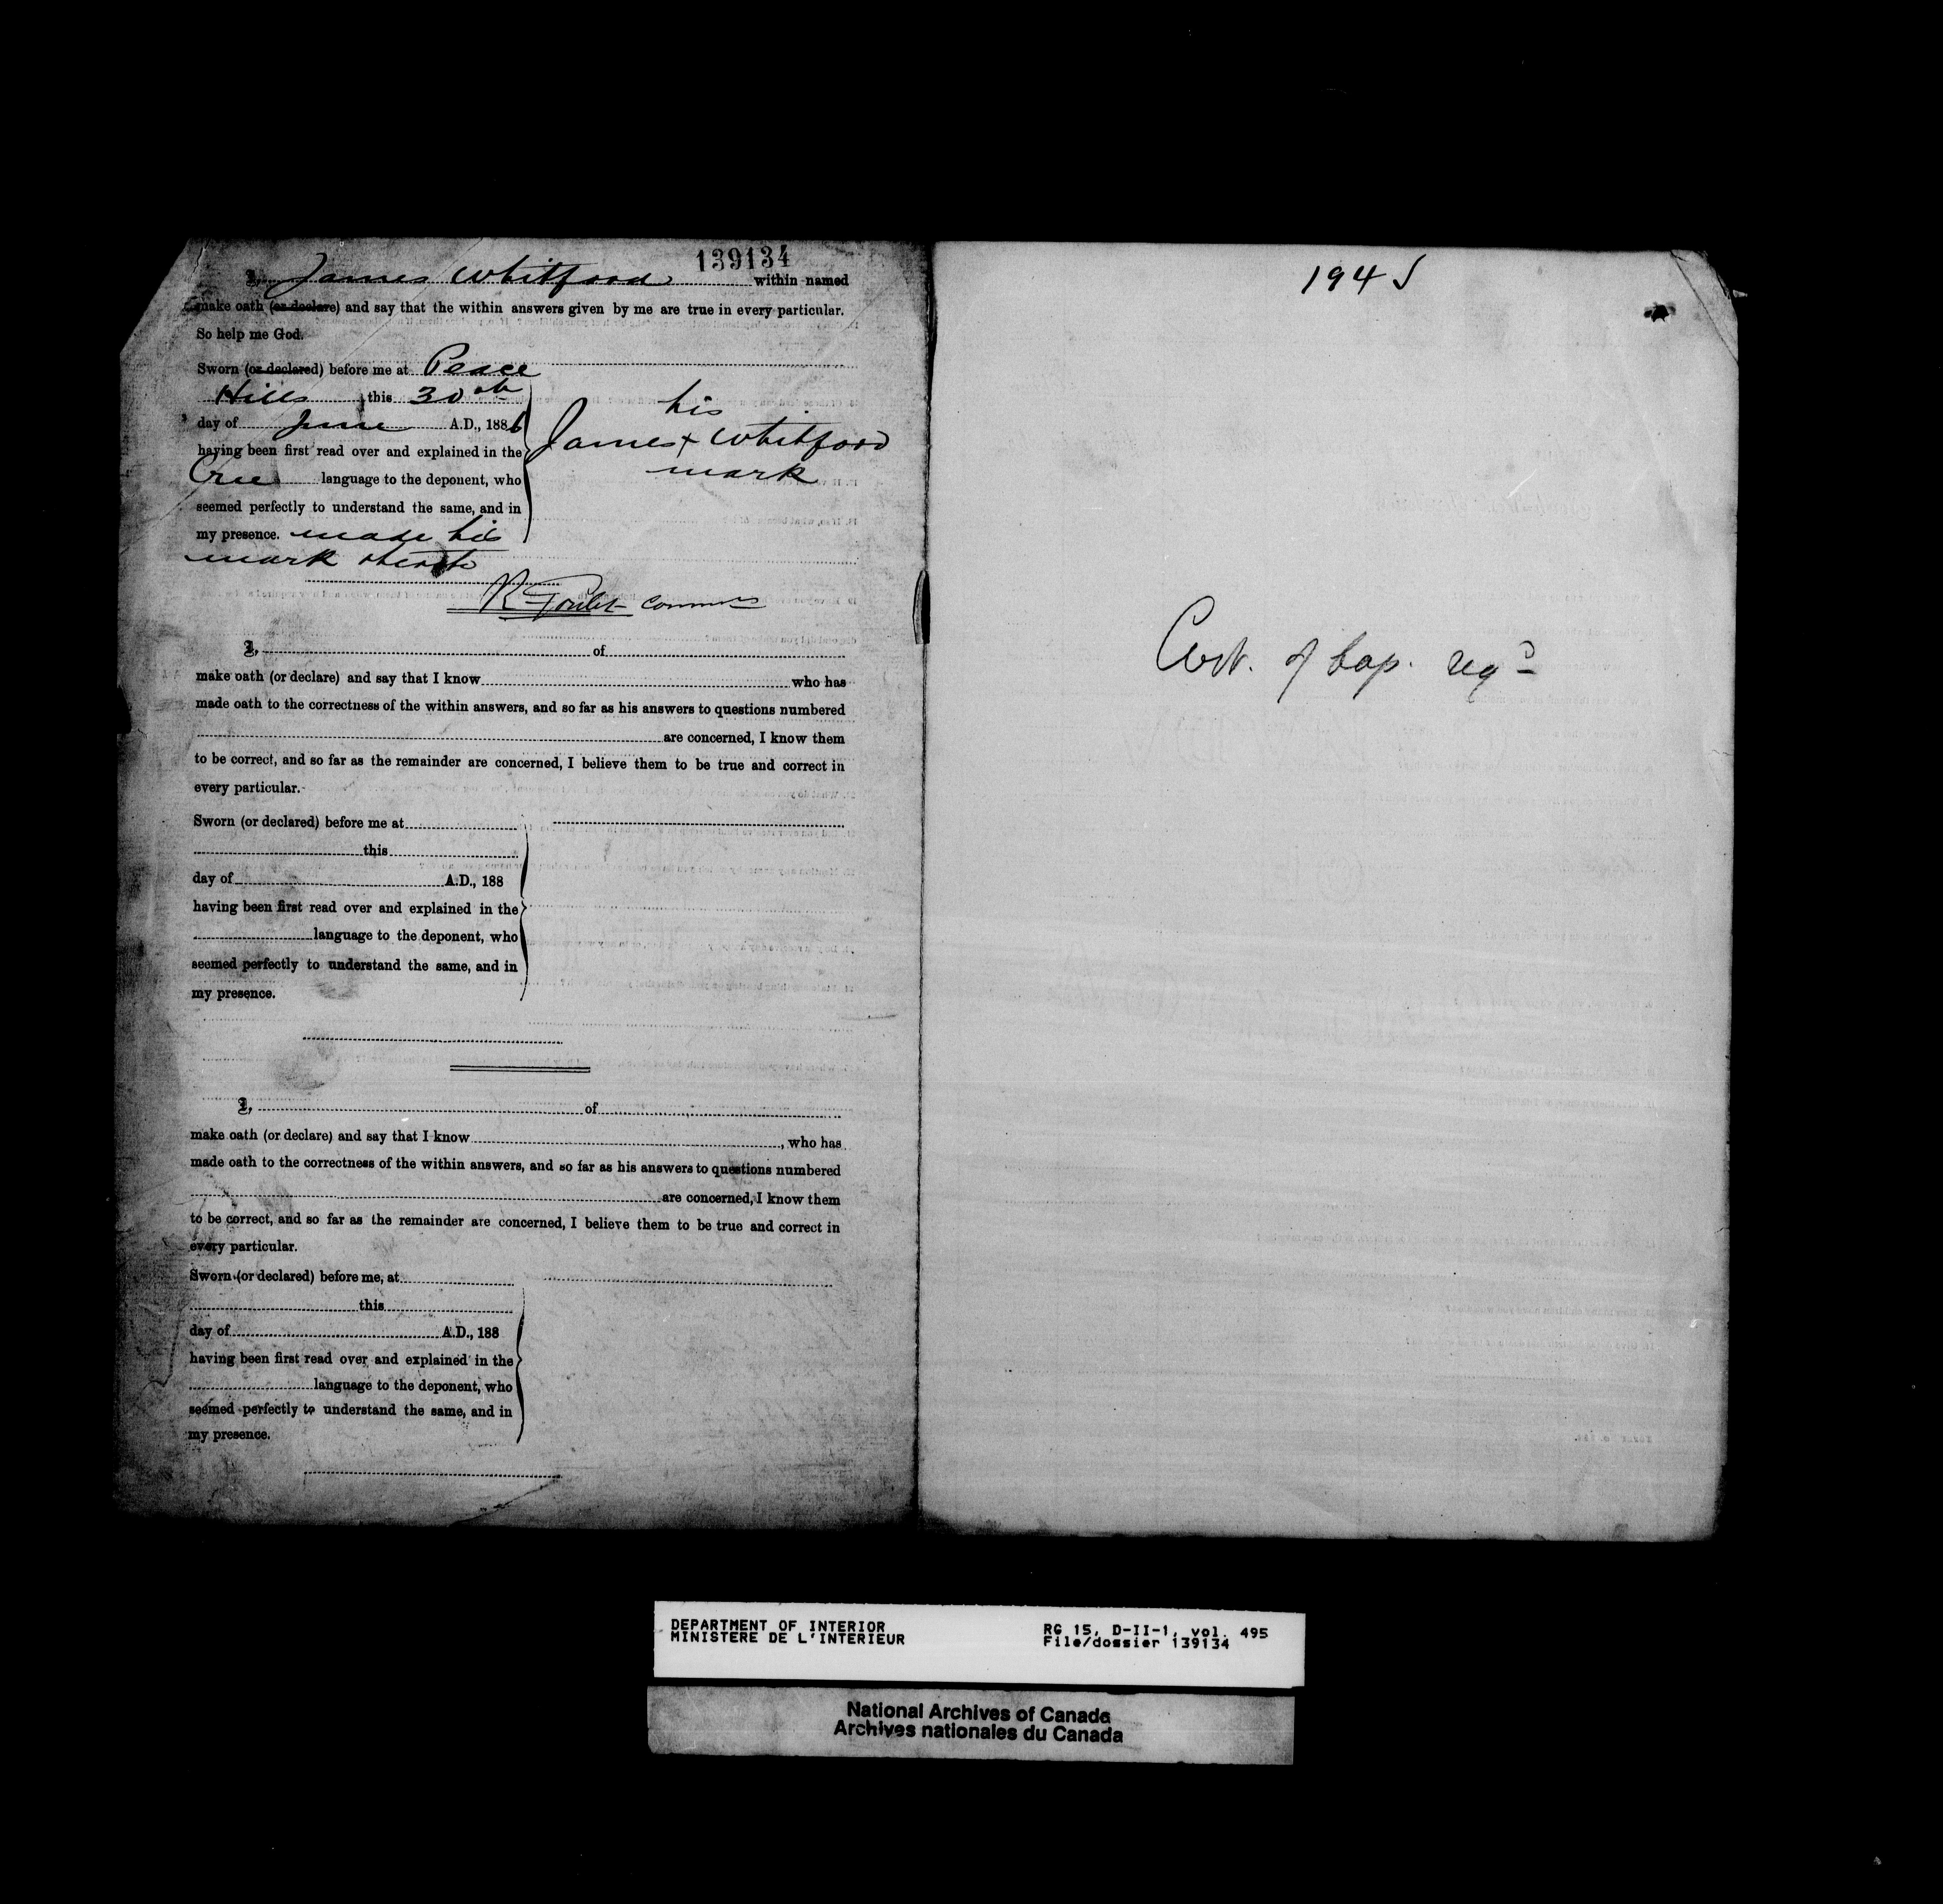 139134
I, James Whitford within named
make oath (or declare) and say that the within answers given by me are true in every particular.
So help me God.
Sworn (or declared) before me at Peace
Hills this 30th
day of June A.D., 1886
having been first read over and explained in the
Cree language to the deponent, who
seemed perfectly to understand the same, and in
my presence. made his
mark thereto
his
James + Whitford
mark
R Goulet
I, of
make oath (or declare) and say that I know who has
made oath to the correctness of the within answers, and so far as his answers to questions numbered
are concerned, I know them
to be correct, and so far as the remainder are concerned, I believe them to be true and correct in
every particular.
Sworn (or declared) before me at
this
day of A.D., 188
having been first read over and explained in the
language to the deponent, who
seemed perfectly to understand the same, and in
my presence.
I, of
make oath (or declare) and say that I know , who has
made oath to the correctness of the within answers, and so far as his answers to questions numbered
are concerned, I know them
to be correct, and so far as the remainder are concerned, I believe them to be true and correct in
every particular.
Sworn (or declared) before me, at
this
day of A.D., 188
having been first read over and explained in the
language to the deponent, who
seemed perfectly to understand the same, and in
my presence.
194
Cert. of bap. reqd
DEPARTMENT OF INTERIOR
MINISTERE DE L'INTERIEUR
RG 15, D-II-1, vol. 495
File/dossier 139134
National Archives of Canada
Archives nationales du Canada